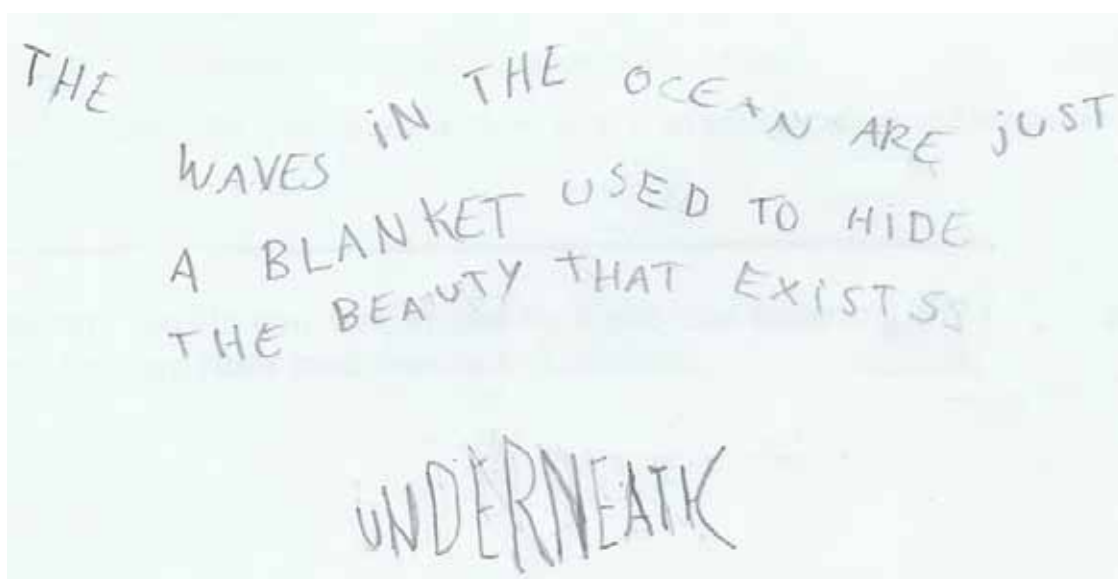 THE WAVES iN THE OCEAN ARE jUST
A BLANKET USED TO HiDE
THE BEAUTY THAT EXiSTSS
UNDERNEATH